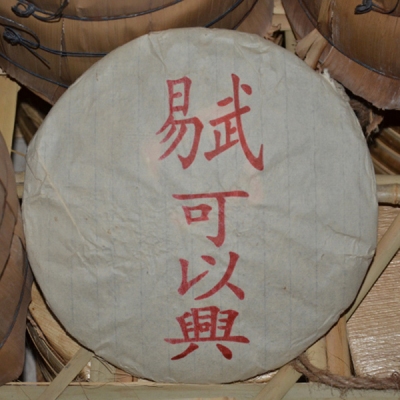 易武
可
以
興